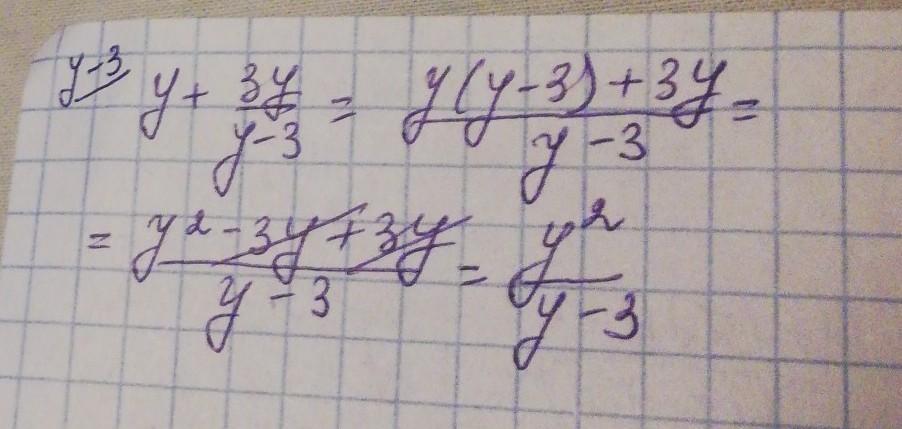 y-3/ y + 3y/(y-3) = (y(y-3)+3y)/(y-3) =
= (y²-3y+3y)/(y-3) = y²/(y-3)